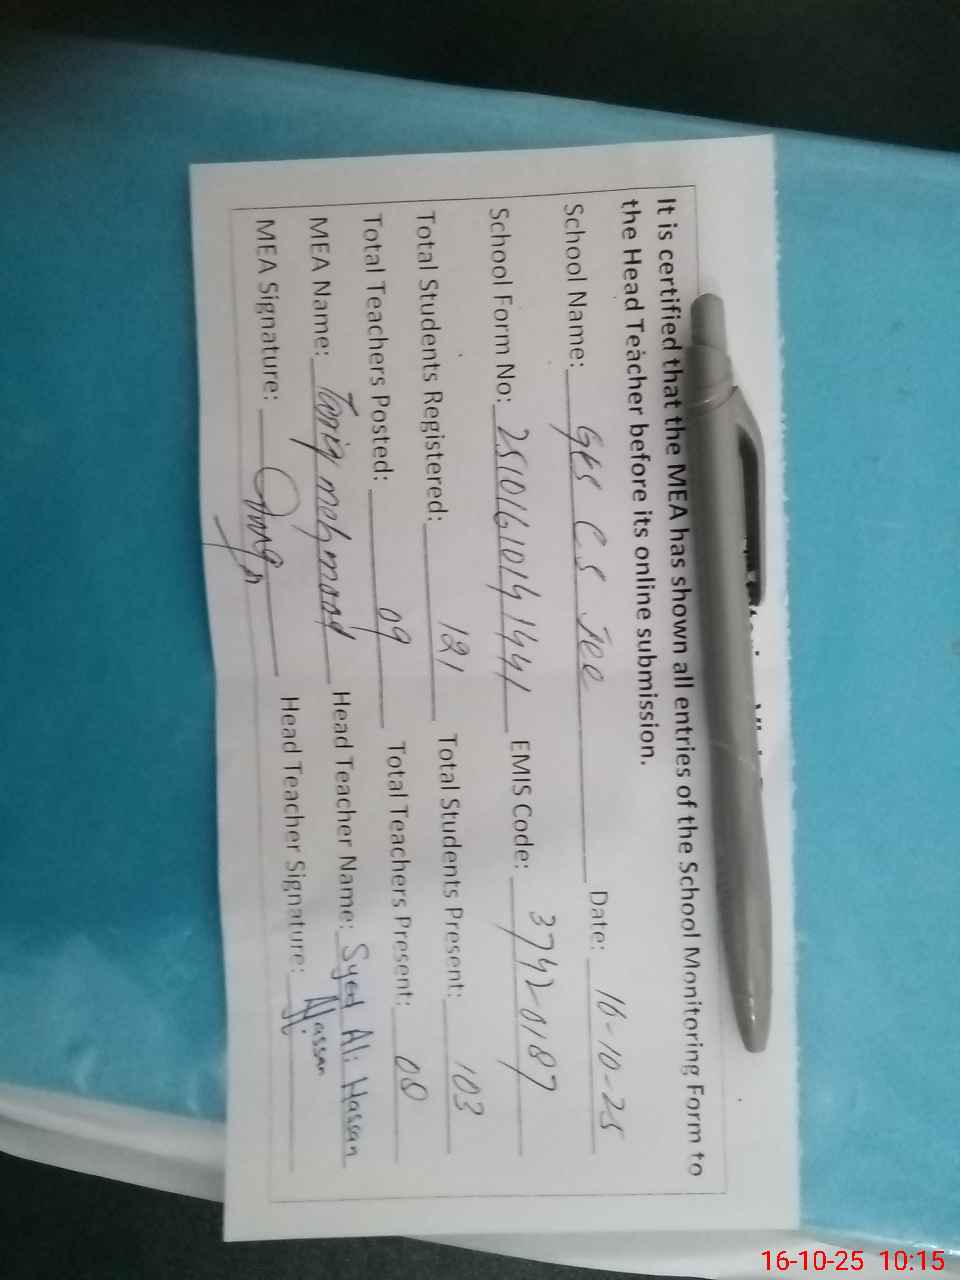 It is certified that the MEA has shown all entries of the School Monitoring Form to
the Head Teacher before its online submission.
School Name: GES C.S Jee Date: 16-10-25
School Form No: 25101610141441 EMIS Code: 37420187
Total Students Registered: 121 Total Students Present: 103
Total Teachers Posted: 09 Total Teachers Present: 08
MEA Name: Tariq mehmood Head Teacher Name: Syed Ali Hassan
MEA Signature: Head Teacher Signature: Hassan
16-10-25 10:15